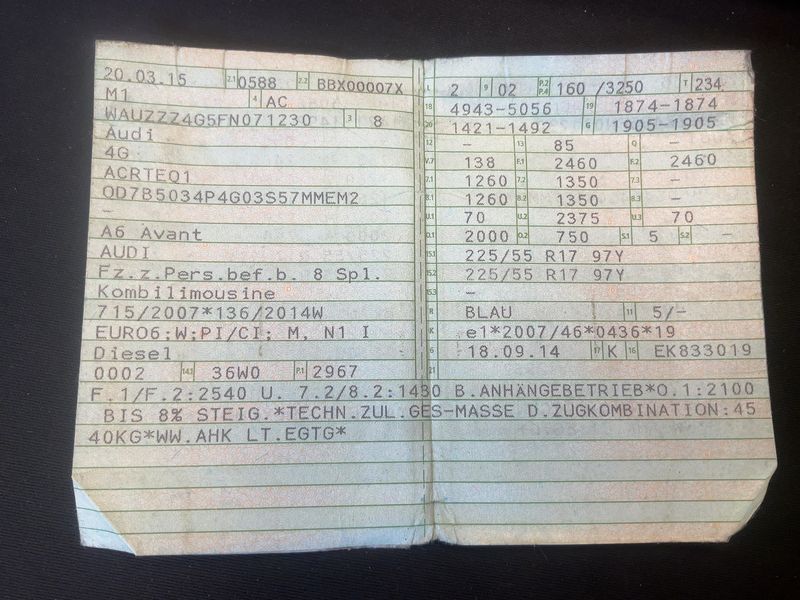 20.03.15 2.1 0588 2.2 BBX00007X
M1 4 AC
WAUZZZ4G5FN071230 3 8
Audi
4G
ACRTEQ1
QD7B5034P4G03S57MMEM2
–
A6 Avant
AUDI
Fz.z.Pers.bef.b. 8 Spl.
Kombilimousine
715/2007*136/2014W
EURO6;W;PI/CI; M, N1 I
Diesel
0002 14.1 36W0 P.1 2967
L 2 9 02 P.2 P.4 160 /3250 T 234
18 4943-5056 19 1874-1874
20 1421-1492 G 1905-1905
12 – 13 85 Q –
V.7 138 F.1 2460 F.2 2460
7.1 1260 7.2 1350 7.3 –
8.1 1260 8.2 1350 8.3 –
U.1 70 U.2 2375 U.3 70
O.1 2000 O.2 750 S.1 5 S.2 –
15.1 225/55 R17 97Y
15.2 225/55 R17 97Y
15.3 –
R BLAU 11 5/–
K e1*2007/46*0436*19
6 18.09.14 17 K 16 EK833019
21
F.1/F.2:2540 U. 7.2/8.2:1430 B.ANHÄNGEBETRIEB*O.1:2100
BIS 8% STEIG.*TECHN.ZUL.GES-MASSE D.ZUGKOMBINATION:45
40KG*WW.AHK LT.EGTG*